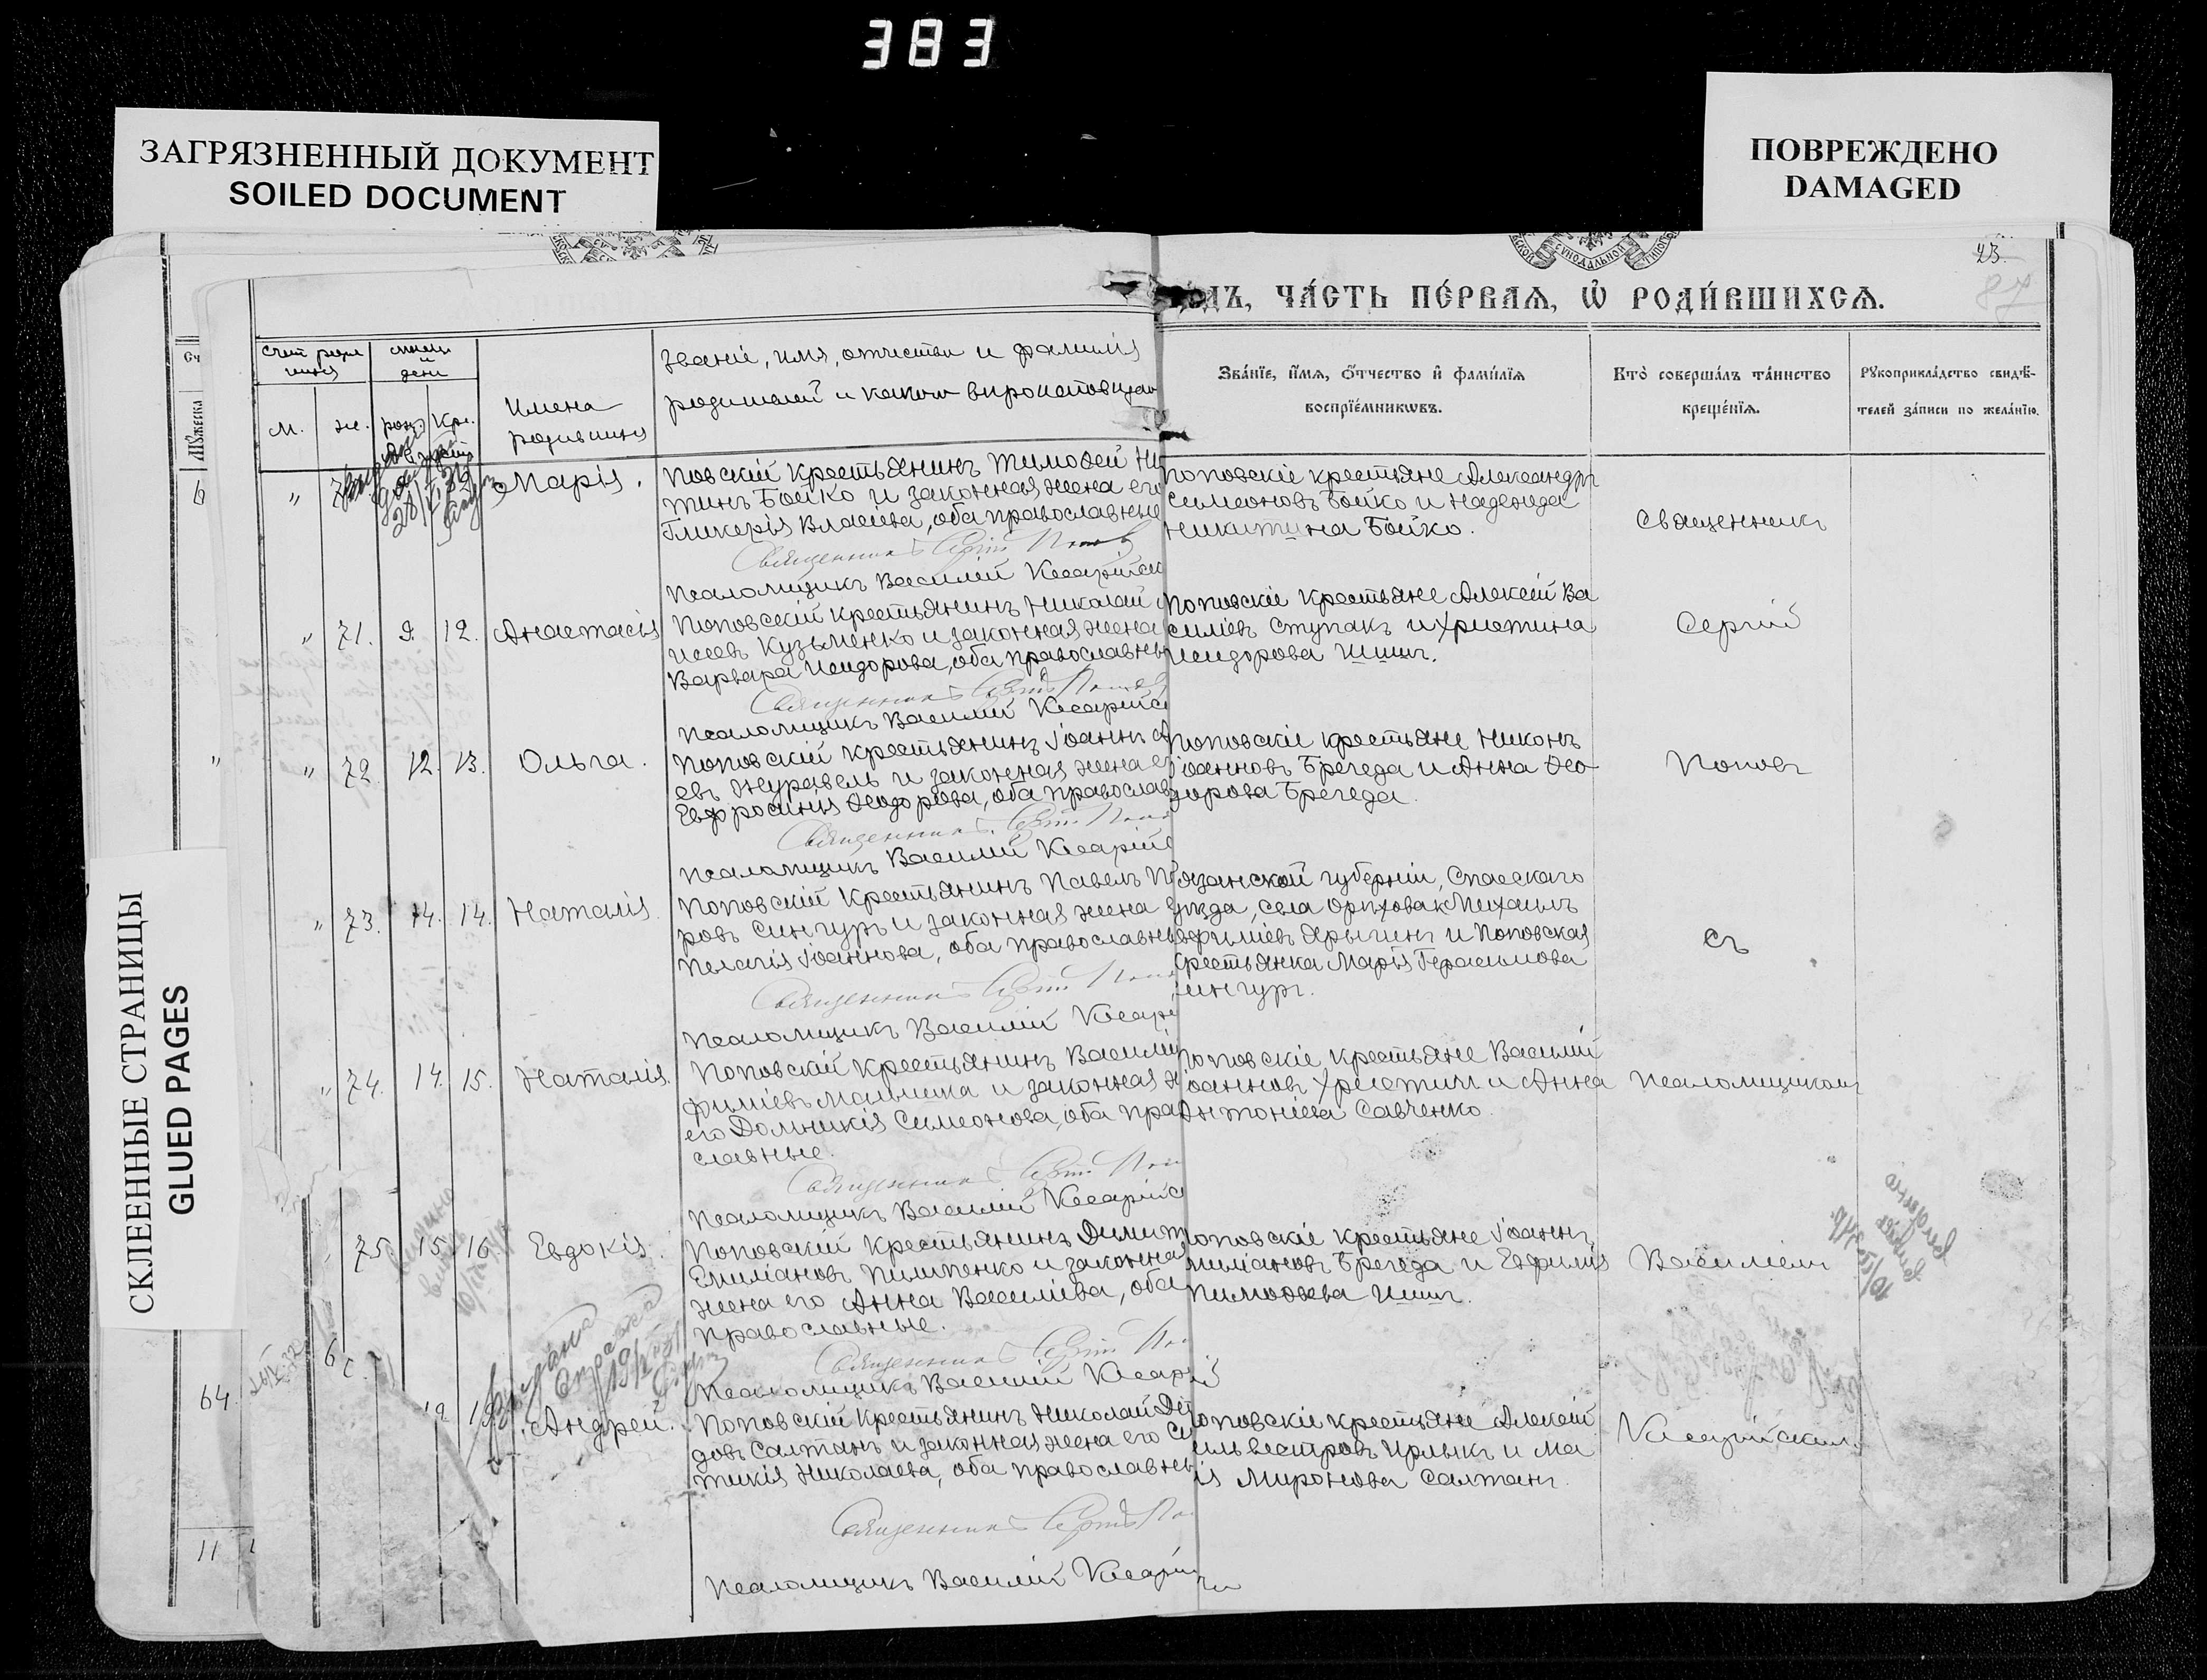 383
ЗАГРЯЗНЕННЫЙ ДОКУМЕНТ
SOILED DOCUMENT
ПОВРЕЖДЕНО
DAMAGED
СКЛЕЕННЫЕ СТРАНИЦЫ
GLUED PAGES
23.
87
ЧА́СТЬ ПЕ́РВАЯ, Ѡ҆ РОДИ́ВШИХСѦ.
м.
же.
Имена
родившихся
Званіе, имя, отчество и фамилія
Зва́нїе, и҆́мѧ, ѻ҆́тчество и҆ фами́лїѧ
воспрїе́мникѡвъ.
Кто̀ соверша́лъ та́инство
креще́нїѧ.
Рꙋкоприкла́дство свидѣ́-
телей за́писи по жела́нїю.
Марія.
повскій крестьянинъ Тимоѳей Ни
тинъ Бойко и законная жена его
Гликерія Власіева, оба православные
Священникъ Сергій Попов
Псаломщикъ Василій Кесарійск
Поповскіе крестьяне Александръ
Симеоновъ Бойко и Надежда
Никитина Бойко.
Священникъ
"
71.
9.
12.
Анастасія
Поповскій крестьянинъ Николай
исеевъ Кузьменко и законная жена
Варвара Исидорова, оба православны
Священникъ Сергій Попов
Псаломщикъ Василій Кесарійс
Поповскіе крестьяне Алексѣй Ва
силіевъ Ступакъ и Христина
Исидорова Шишъ.
Сергій
"
72.
12.
13.
Ольга.
Поповскій крестьянинъ Іоаннъ
евъ Журавель и законная жена е
Евфросинія Ѳеодорова, оба православ
Священникъ Сергій Попо
Псаломщикъ Василій Кесарійс
Поповскіе крестьяне Никонъ
Іоанновъ Брегеда и Анна Ѳео-
дорова Брегеда.
Попов
"
73.
14.
14.
Наталія.
Поповскій крестьянинъ Павелъ
ровъ Сингуръ и законная жена
Пелагія Іоаннова, оба православн
Священникъ Сергій Попо
Псаломщикъ Василій Кесарі
язанской губерніи, Спасскаго
уѣзда, села Михаилъ
вфиміевъ Ярыгинъ и Поповская
крестьянка Марія Герасимова
ингуръ.
съ
"
74.
14.
15.
Наталія.
Поповскій крестьянинъ Василій
фиміевъ Малышка и законная ж
его Домникія Симеонова, оба пра
славные.
Священникъ Сергій Поп
Псаломщикъ Василій Кесарійс
Поповскіе крестьяне Василій
Іоанновъ Христичъ и Анна
Антоніева Савченко.
Псаломщикомъ
75
15.
16.
Евдокія.
Поповскій крестьянинъ Димит
Емиліановъ Пилипенко и законная
жена его Анна Василіева, оба
православные.
Священникъ Сергій По
Псаломщикъ Василій Кесарій
оповскіе крестьяне Іоаннъ
миліановъ Брегеда и Евфимія
Тимоѳеева Шишъ.
Василіемъ
64.
Выдана
справка
Андрей.
Поповскій крестьянинъ Николай
довъ Салтанъ и законная жена его
тикія Николаева, оба православны
Священникъ Сергій По
Псаломщикъ Василій Кесарій
оповскіе крестьяне Алексѣй
ильвестровъ Ярлыкъ и Ма
ія Миронова Салтанъ.
Кесарійскимъ.
11